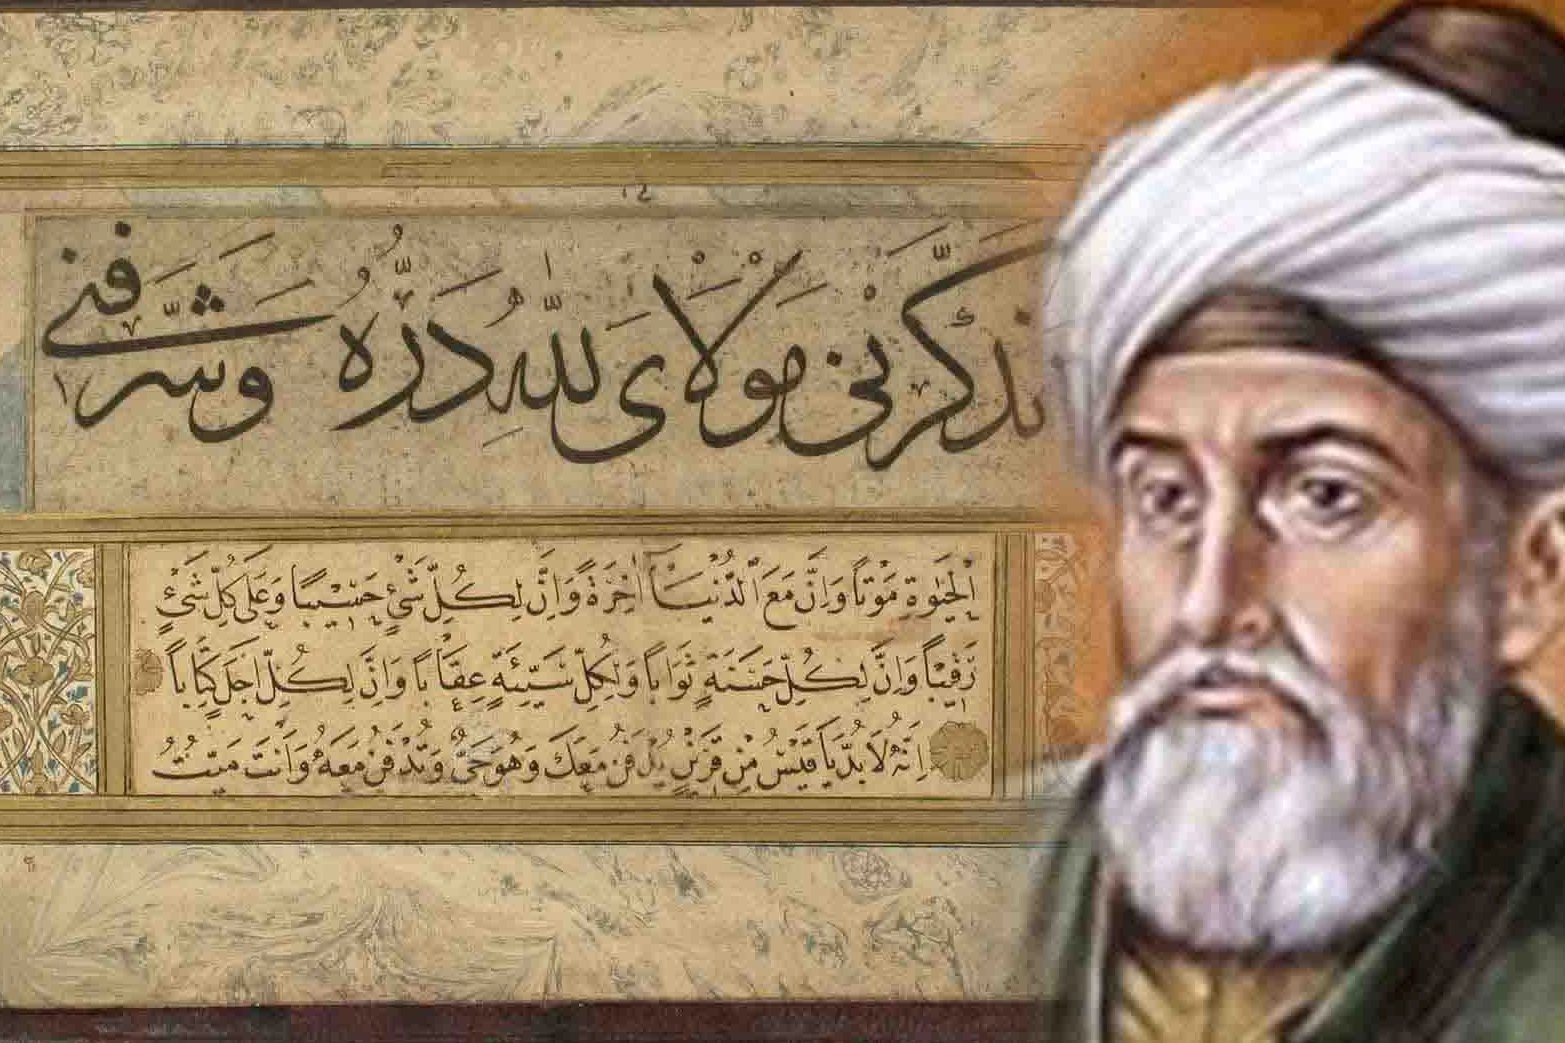 تَذَكَّرَنِى مَوْلَاىَ لِلّٰهِ دَرُّهُ وَشَرَّفَنِى
الْحَيٰوةِ مَوْتاً وَاِنَّ مَعَ الدُّنْيَا اٰخِرَةً وَاِنَّ لِكُلِّ شَىْءٍ حَسِيبًا وَعَلٰى كُلِّ شَىْءٍ
رَقِيْبًا وَاِنَّ لِكُلِّ حَسَنَةٍ ثَوَاباً وَلِكُلِّ سَيِّئَةٍ عِقَاباً وَاِنَّ لِكُلِّ اَجَلٍ كِتَاباً
اِنَّهُ لَا بُدَّ يَا قَيْسُ مِنْ قَرِينٍ يُدْفَنُ مَعَكَ وَهُوَ حَىٌّ وَتُدْفَنُ مَعَهُ وَاَنْتَ مَيِّتٌ